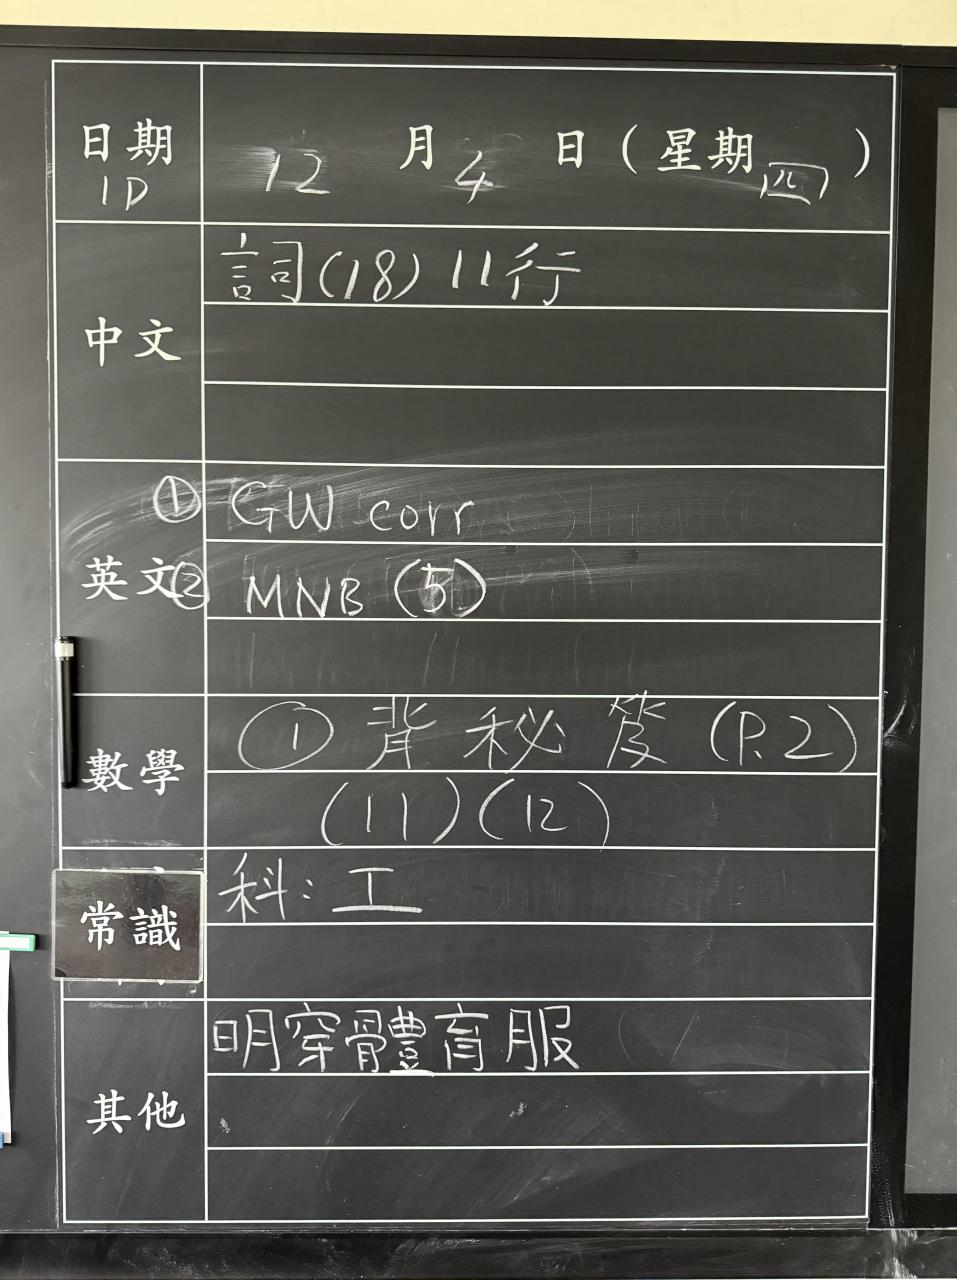 日期 12 月 4 日 (星期四)
1D
中文 詞(18) 11行
英文 ① GW corr
② MNB (5)
數學 ① 背 秘笈 (P.2)
(11) (12)
常識 科: 工
其他 明穿體育服